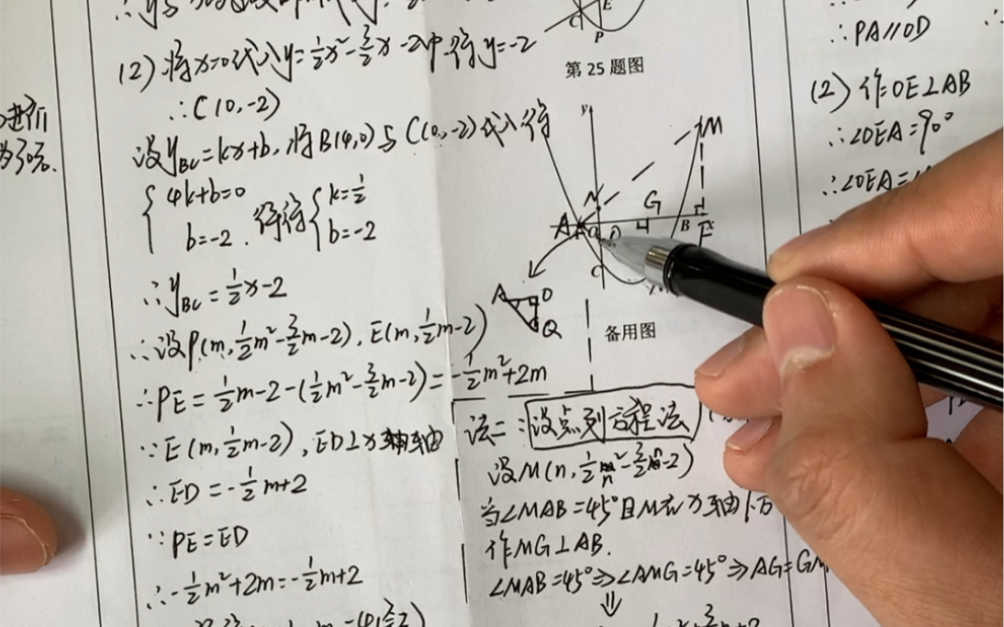 (2) 将x=0代入y=½x²-3/2x-2中得y=-2
∴C(0,-2)
设y_BC=kx+b,将B(4,0)与C(0,-2)代入得
{4k+b=0
b=-2.
得
{k=½
b=-2
∴y_BC=½x-2
∴设P(m,½m²-3/2m-2),E(m,½m-2)
∴PE=½m-2-(½m²-3/2m-2)=-½m²+2m
∵E(m,½m-2),ED⊥x轴
∴ED=-½m+2
∵PE=ED
∴-½m²+2m=-½m+2
C E
P
第25题图
y
M
N
G
A O D B F x
C
A O
Q
备用图
法二:设点列方程法
设M(n,½n²-3/2n-2)
当∠MAB=45°且M在x轴下方
作MG⊥AB.
∠MAB=45°⇒∠AMG=45°⇒AG=GM
⇓
∴PA//OD
(2) 作OE⊥AB
∴∠OEA=90°
∴∠OEA=